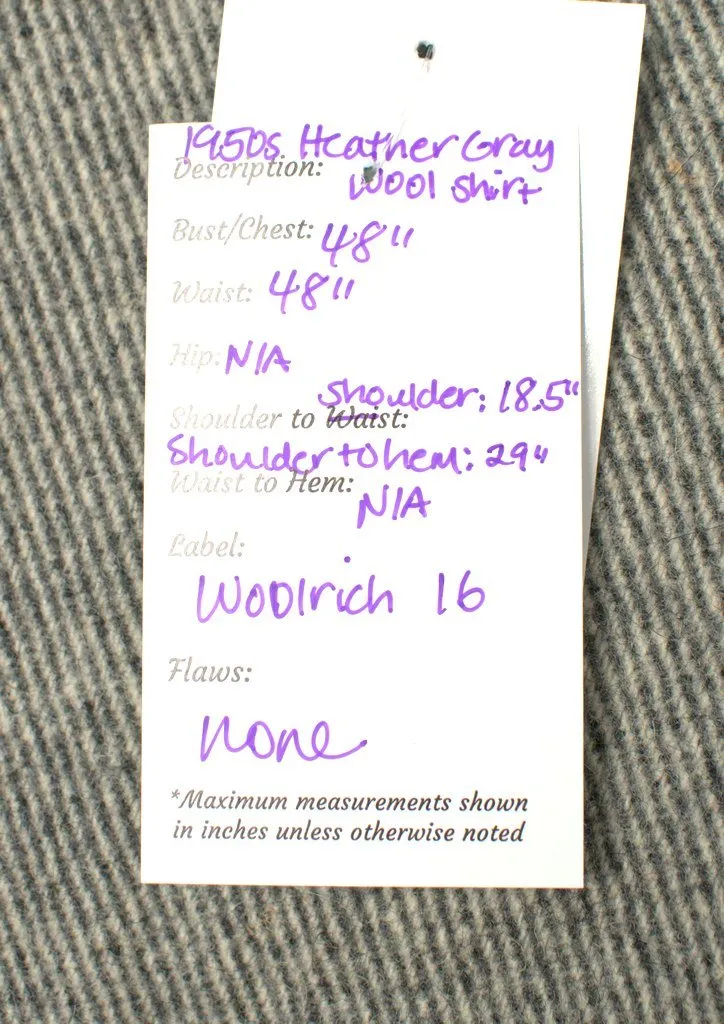 1950s Heather Gray
Description: Wool Shirt
Bust/Chest: 48"
Waist: 48"
Hip: N/A
Shoulder: 18.5"
Shoulder to Waist:
Shoulder to hem: 29"
Waist to Hem:
N/A
Label:
Woolrich 16
Flaws:
none
*Maximum measurements shown
in inches unless otherwise noted